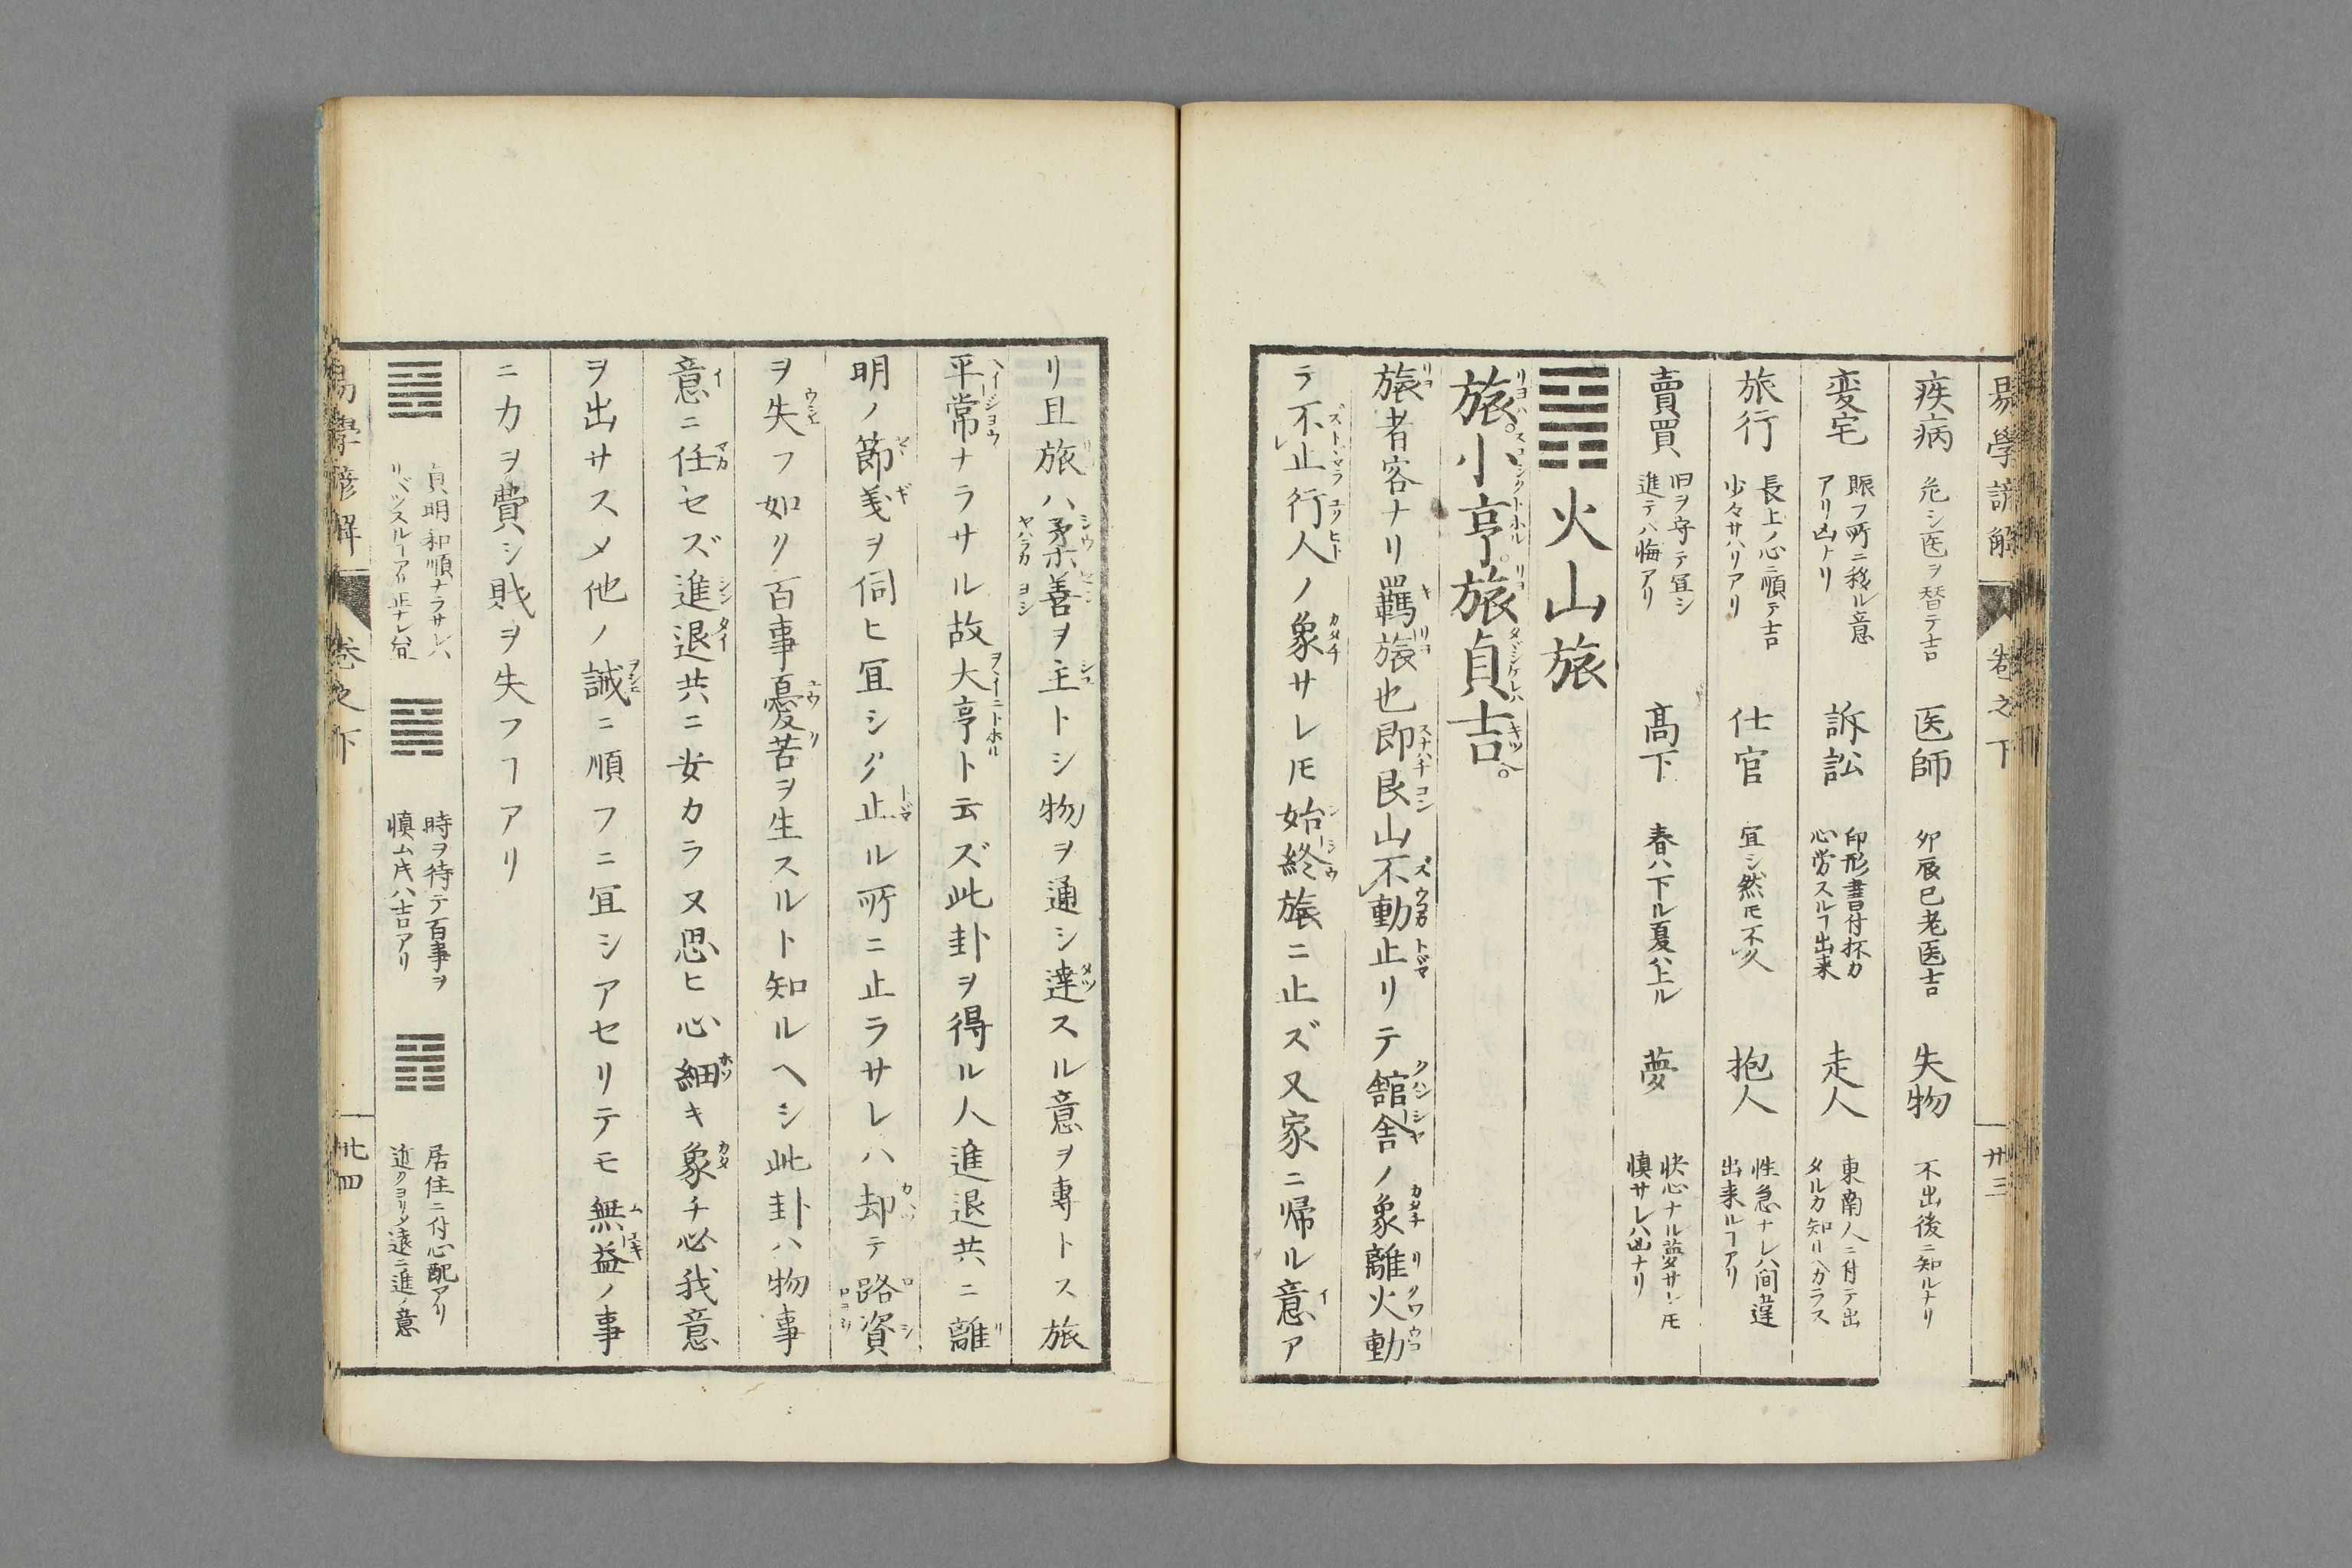 易學諺解　巻之下　卅三
疾病　危シ医ヲ替テ吉　医師　卯辰巳老医吉　失物　不出後ニ知ルナリ
変宅　賑フ所ニ移ル意アリ凶ナリ　訴訟　印形書付抔カ心労スルヿ出来　走人　東南人ニ付テ出タルカ知ルヘカラス
旅行　長上ノ心ニ順テ吉少々サハリアリ　仕官　宜シ然モ不久　抱人　性急ナレハ間違出来ルヿアリ
賣買　旧ヲ守テ宜シ進テハ悔アリ　髙下　春ハ下ル夏ハ上ル　夢　快心ナル夢サレ𪜈慎サレハ凶ナリ
火山旅
旅小亨旅貞吉
旅者客ナリ羈旅也即艮山不動止リテ舘舎ノ象離火動
テ不止行人ノ象サレ𪜈始終旅ニ止ズ又家ニ帰ル意ア
リ且旅ハ柔善ヲ主トシ物ヲ通シ達スル意ヲ専トス旅
平常ナラサル故大亨ト云ズ此卦ヲ得ル人進退共ニ離
明ノ節義ヲ伺ヒ宜シク止ル所ニ止ラサレハ却テ路資
ヲ失フ如リ百事憂苦ヲ生スルト知ルヘシ此卦ハ物事
意ニ任セズ進退共ニ安カラ又思ヒ心細キ象チ必我意
ヲ出サスメ他ノ誡ニ順フニ宜シアセリテモ無益ノ事
ニカヲ費シ財ヲ失フヿアリ
貞明和順ナラサレハ
リベツスルヿアリ
時ヲ待テ百事ヲ
慎ム𪜈ハ吉アリ
居住ニ付心配アリ
近クヨリ遠ニ進ノ意
易學諺解　巻之下　卅四